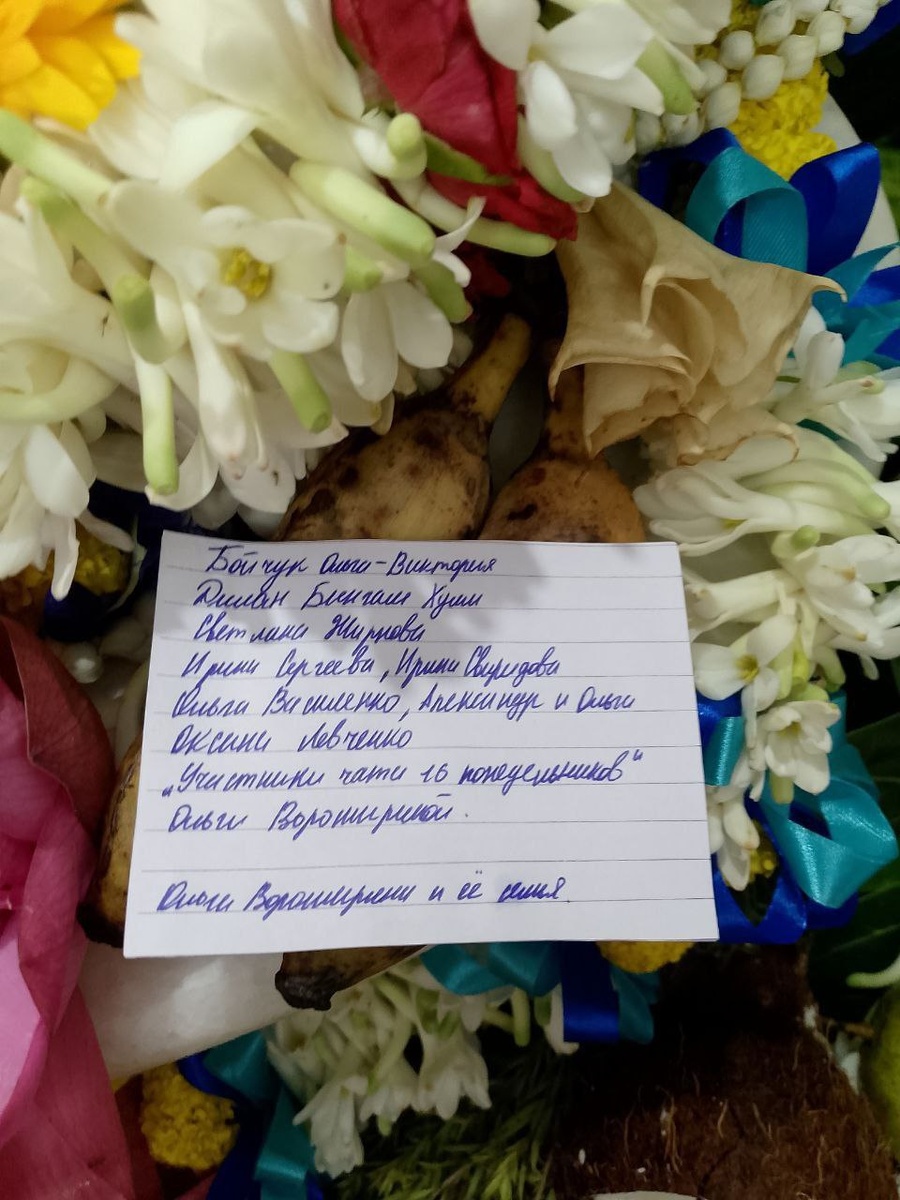 Бойчук Ольга-Виктория
Дилан Бингам Хули
Светлана Жиркова
Ирина Сергеева, Ирина Свиридова
Ольга Василенко, Александр и Ольга
Оксана Левченко
„Участники чата 16 понедельников"
Ольги Ворошириной.
Ольга Воропирина и её семья